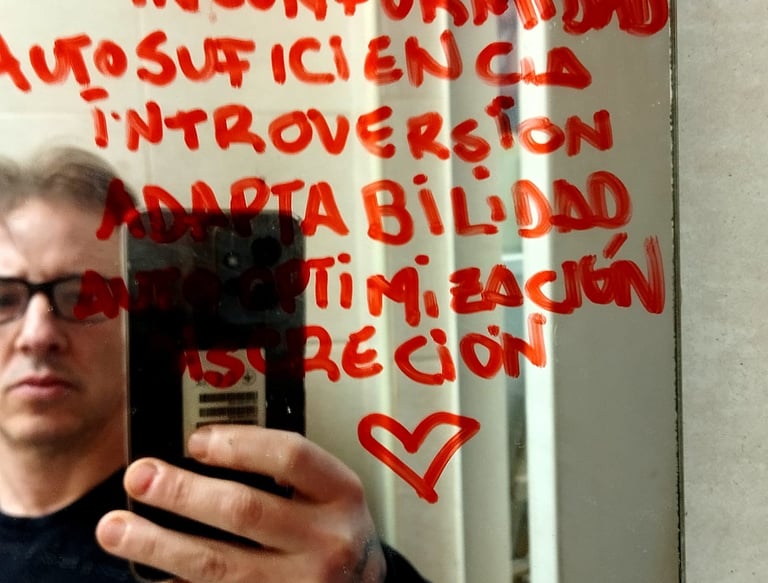 INCONFORMIDAD
AUTOSUFICIENCIA
INTROVERSION
ADAPTABILIDAD
AUTOOPTIMIZACIÓN
DISCRECIÓN